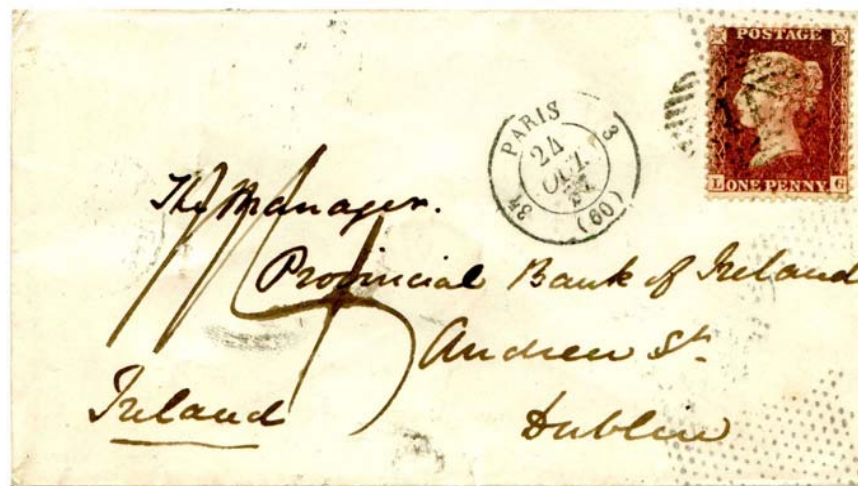 POSTAGE
L ONE PENNY G
PARIS
24
OCT.
57
(60)
The Manager.
Provincial Bank of Ireland
Andrew St.
Dublin
Ireland